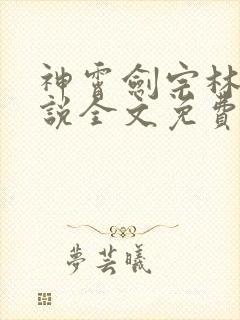 神霄劍宗林
說全文免費
夢芸曦